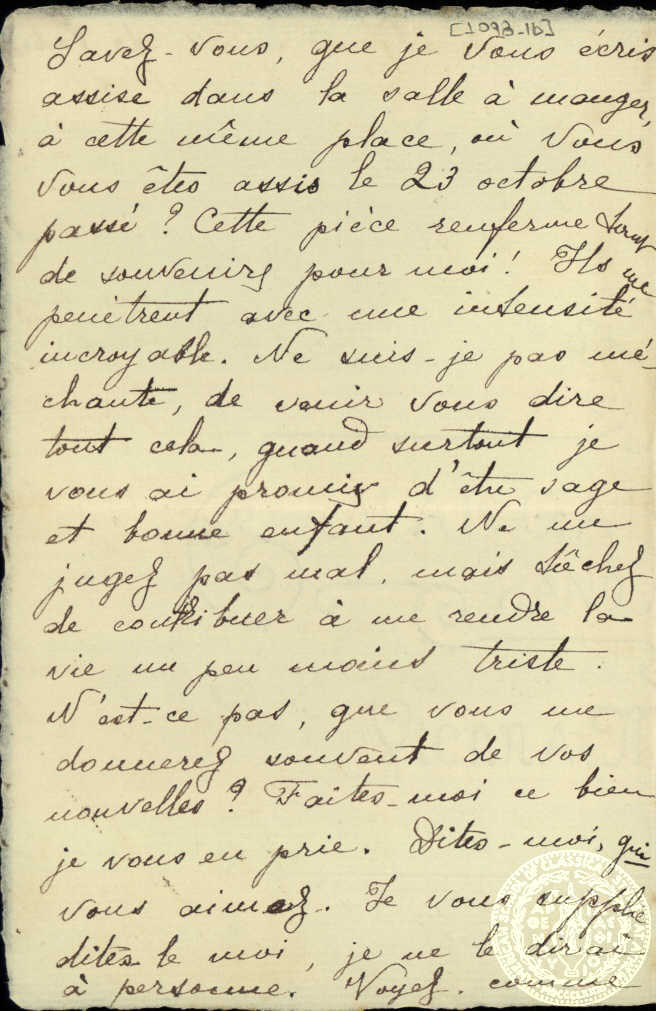 [1093-1b]
Savez-vous, que je Vous écris
assise dans la salle à manger,
à cette même place, où Vous
Vous êtes assis le 23 octobre
passé? Cette pièce renferme tant
de souvenirs pour moi! Ils me
penètrent avec une intensité
incroyable. Ne suis-je pas mé-
chante, de venir Vous dire
tout cela, quand surtout je
vous ai promis d'être sage
et bonne enfant. Ne me
jugez pas mal, mais tâchez
de contribuer à me rendre la
vie un peu moins triste.
N'est-ce pas, que vous me
donnerez souvent de vos
nouvelles? Faites-moi ce bien
je vous en prie. Dites-moi, qui
vous aimez. Je vous supplie
dites le moi, je ne le dirai
à personne. Voyez, comme